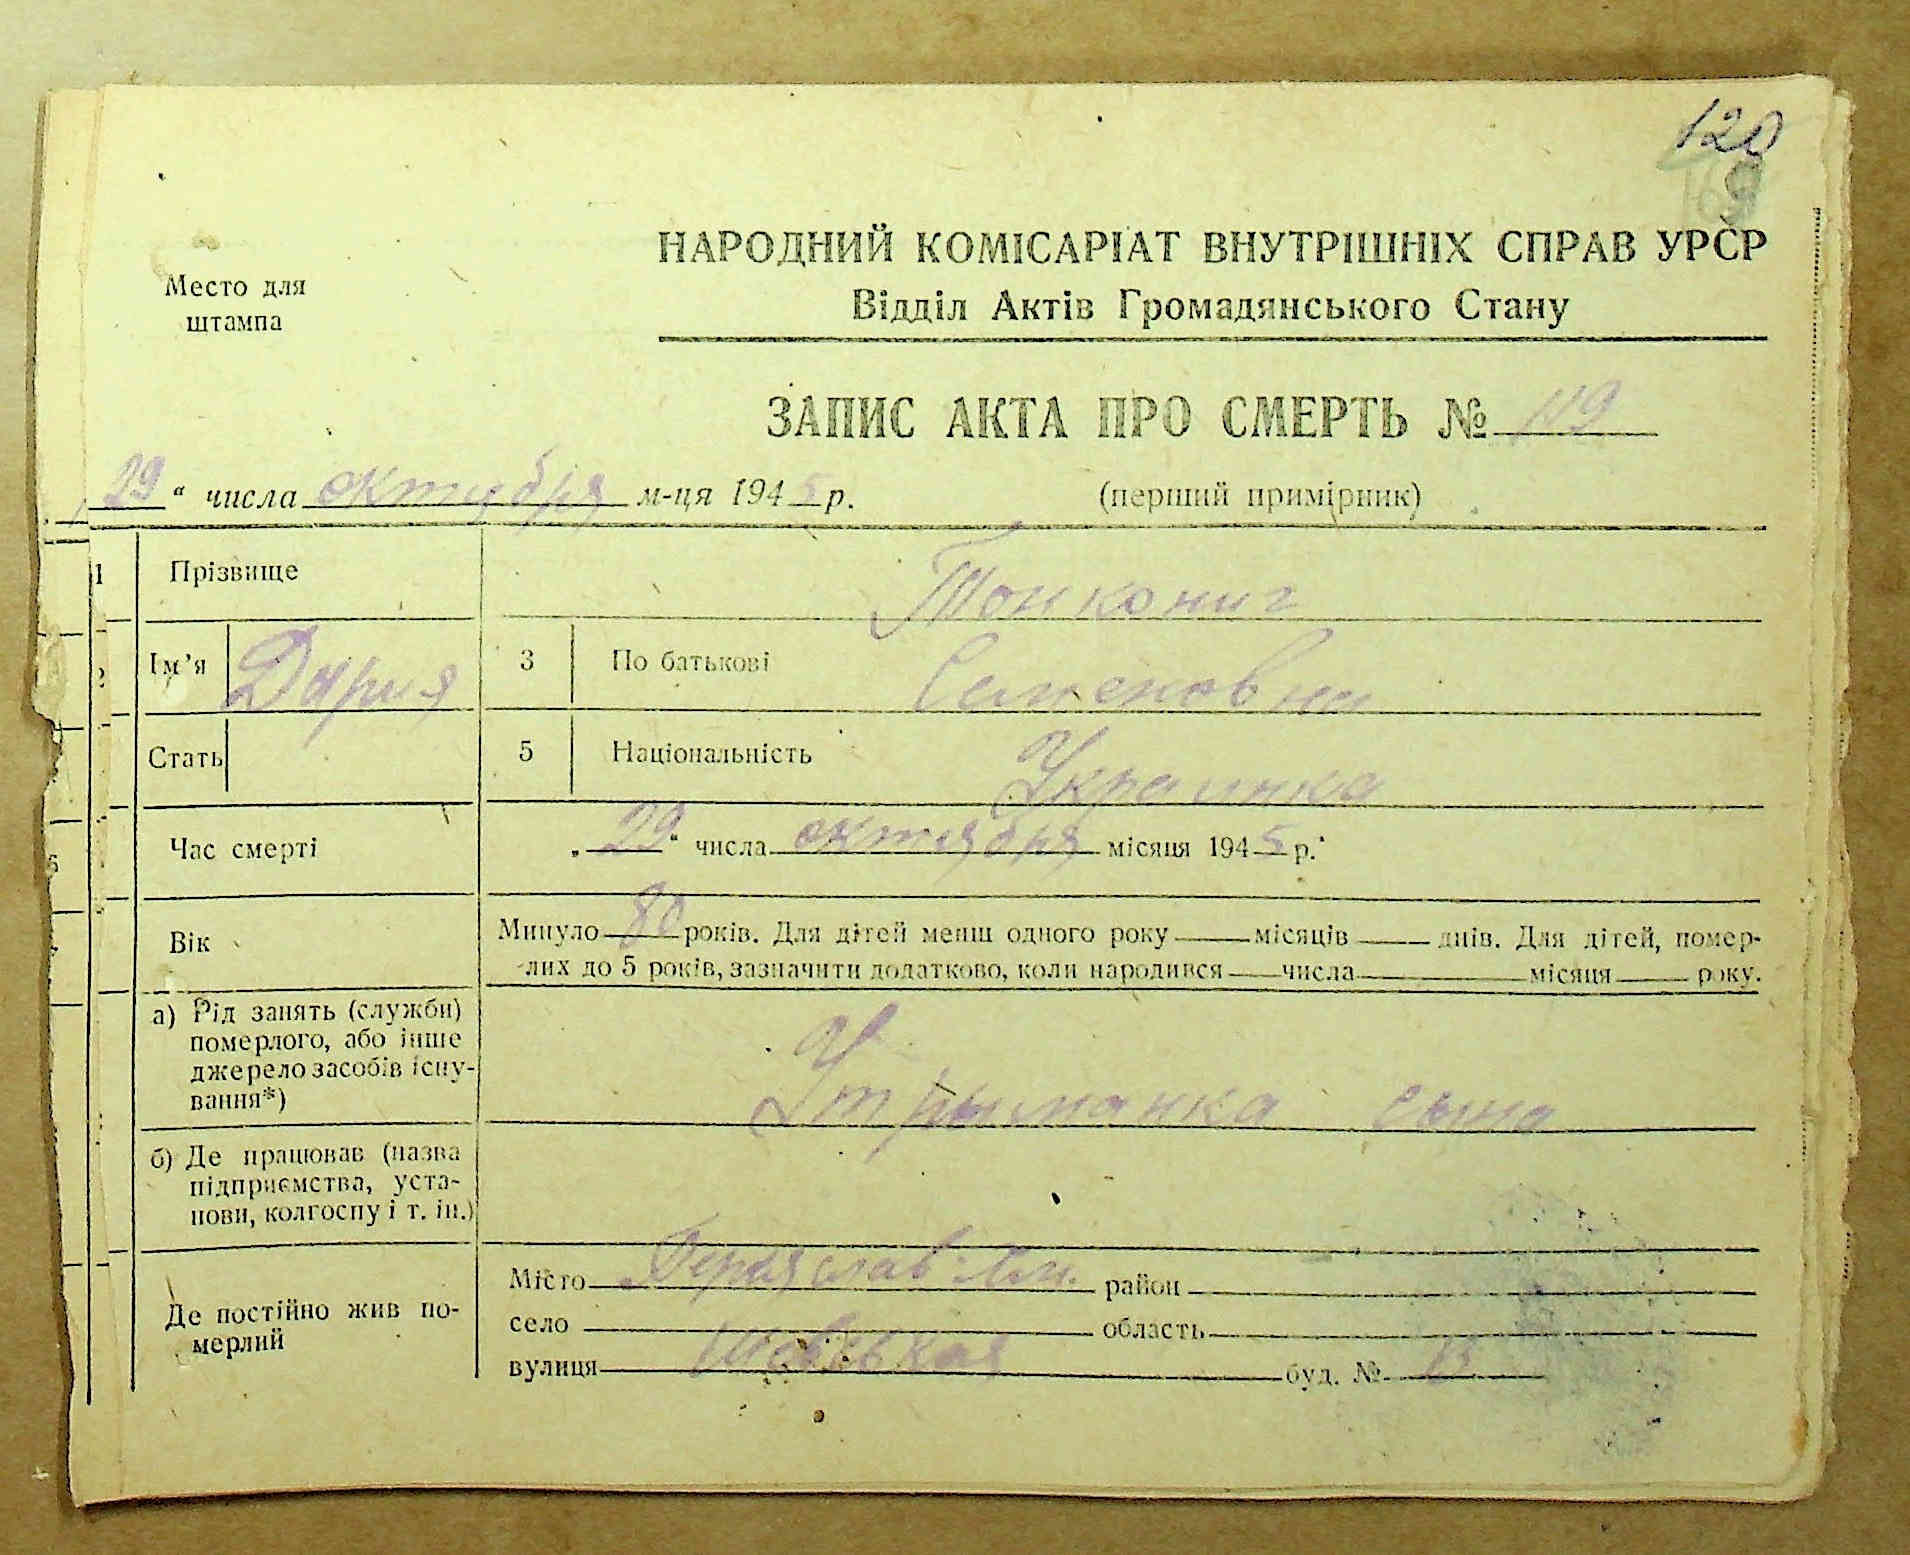 120
Место для
штампа
НАРОДНИЙ КОМІСАРІАТ ВНУТРІШНІХ СПРАВ УРСР
Відділ Актів Громадянського Стану
ЗАПИС АКТА ПРО СМЕРТЬ № 119
29 “ числа октября м-ця 1945 р. (перший примірник)
1 Прізвище Тонкониг
2 Ім’я Дария 3 По батькові Семеновна
Стать 5 Національність Украинка
Час смерті „ 29 “ числа октября місяця 1945 р.
Вік Минуло 80 років. Для дітей менш одного року місяців днів. Для дітей, помер-
лих до 5 років, зазначити додатково, коли народився числа місяця року.
а) Рід занять (служби)
померлого, або інше
джерело засобів існу-
вання*)
Утрыманка сына
б) Де працював (назва
підприємства, уста-
нови, колгоспу і т. ін.)
Де постійно жив по-
мерлий
Місто Переяслав Хм. район
село область
вулиця буд. №